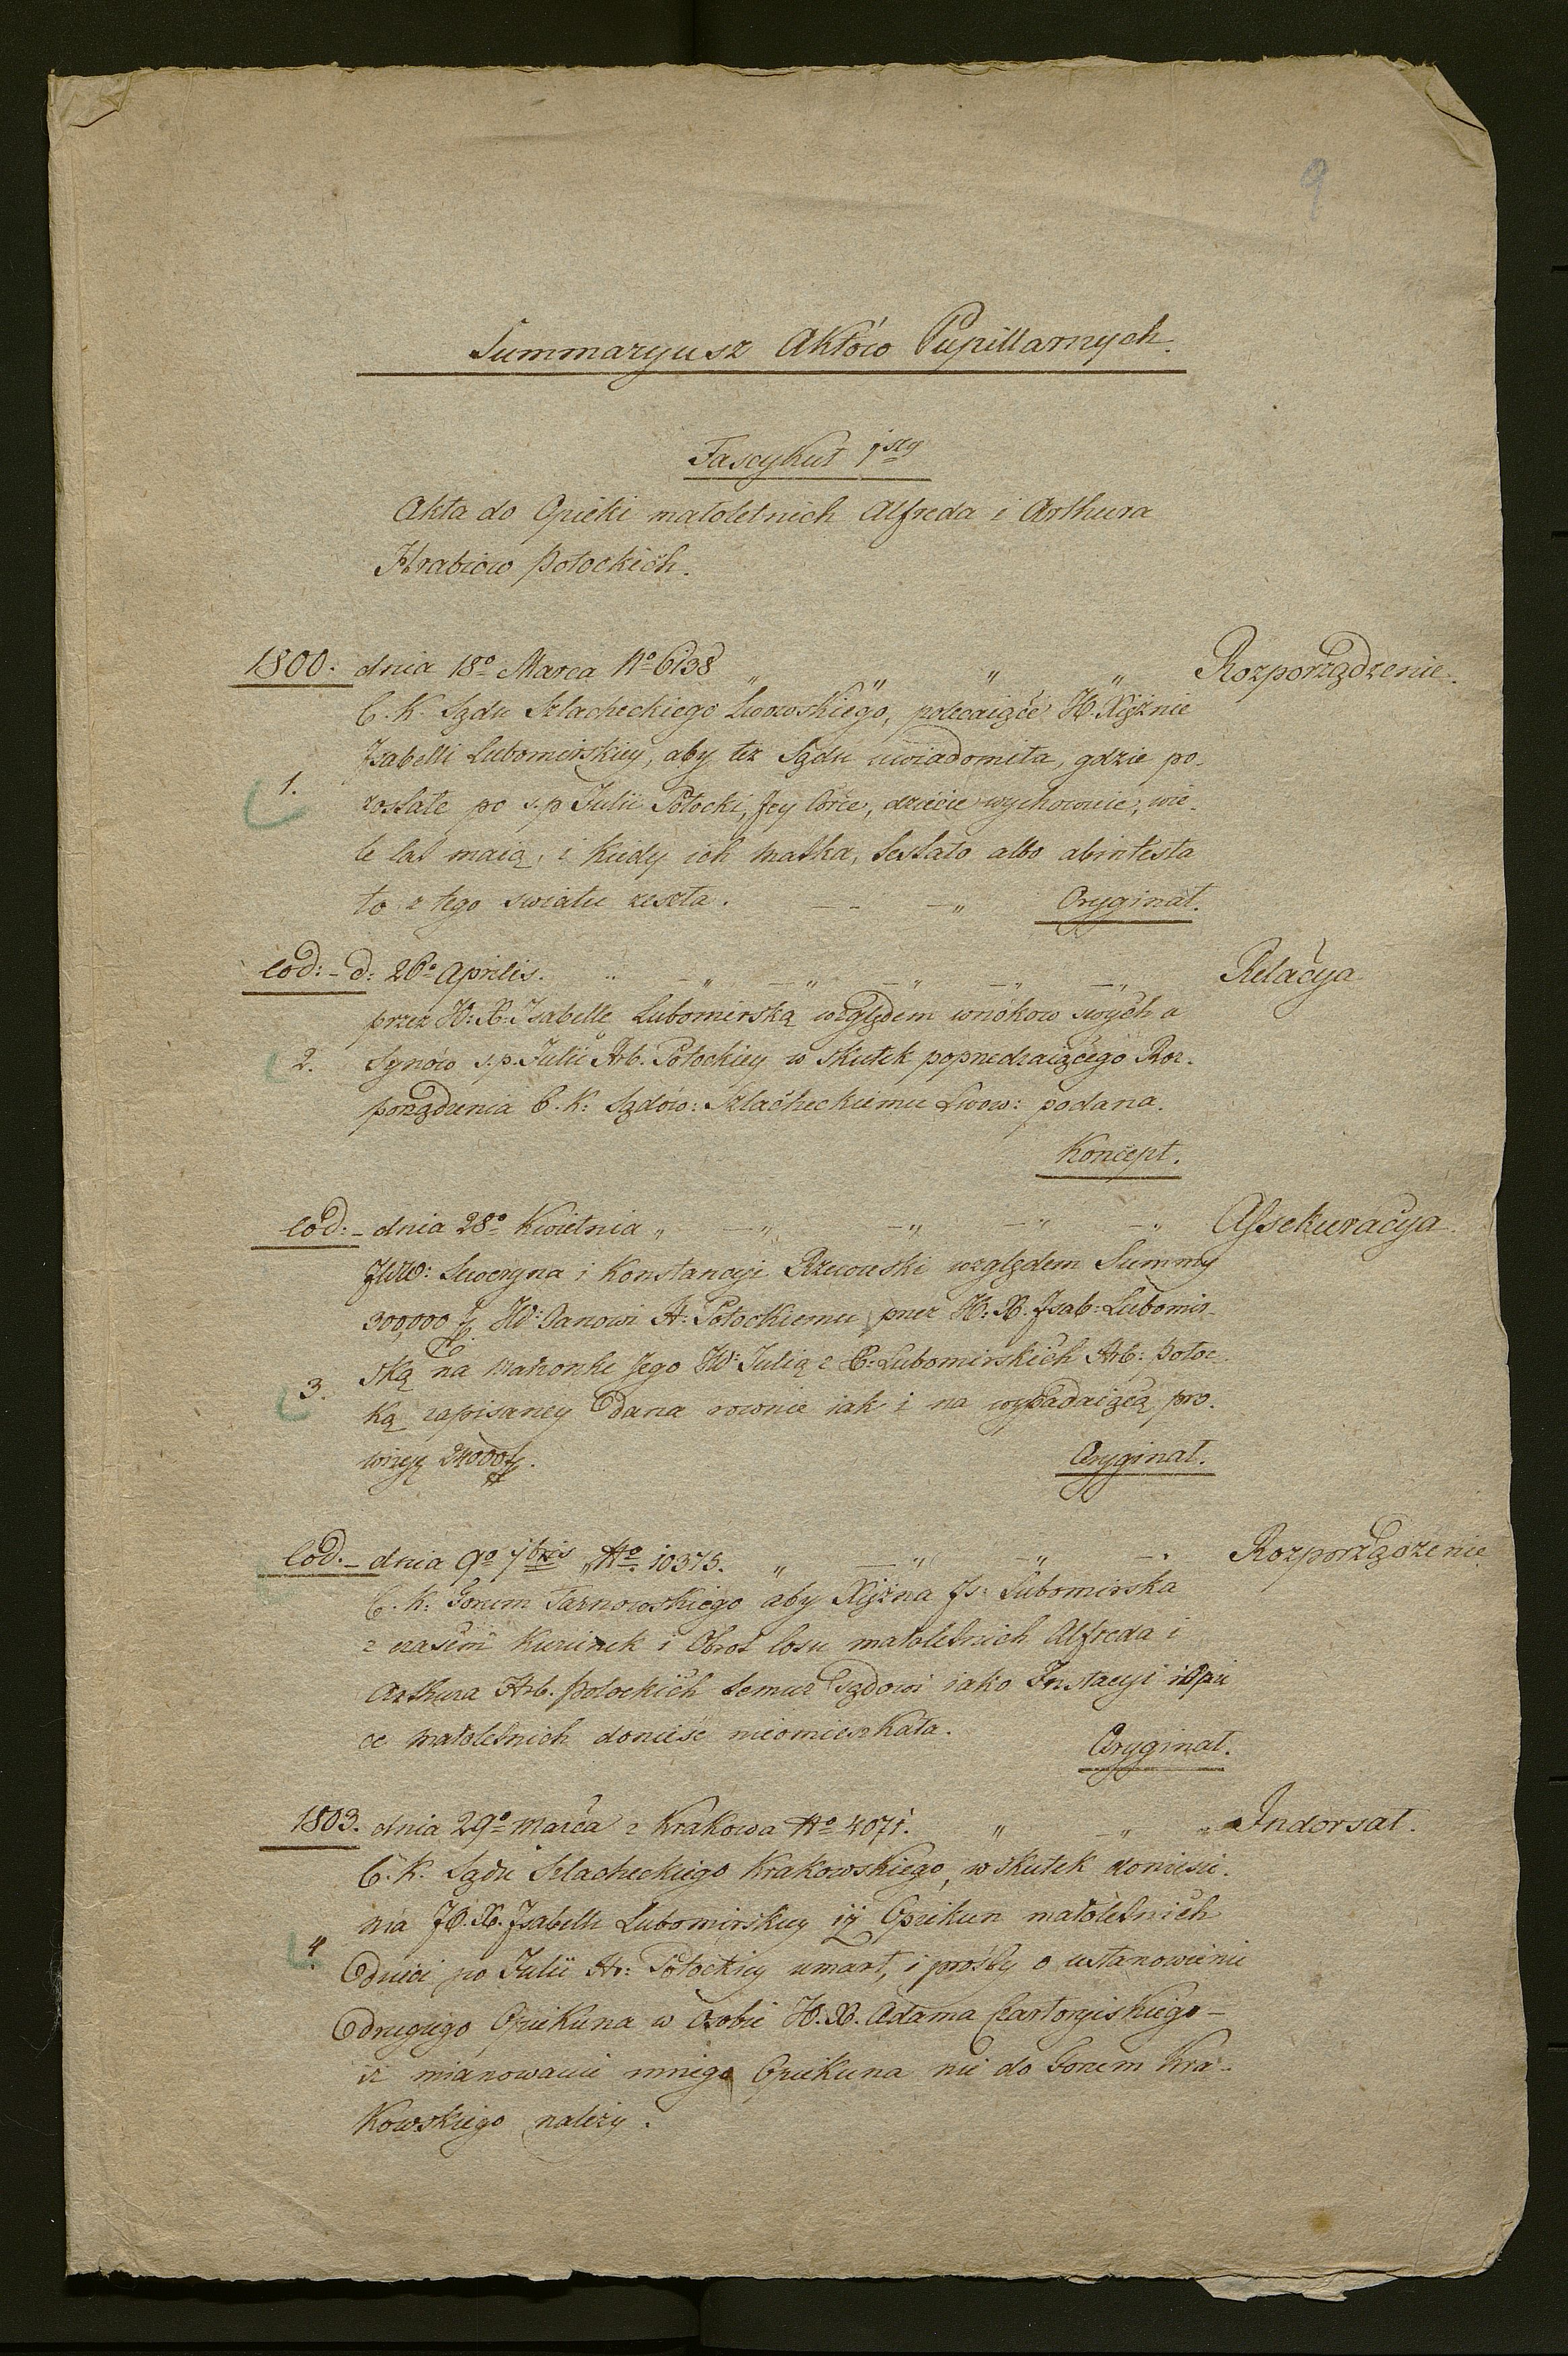 9
Summaryusz Aktów Pupillarnych.
Fascykuł 1szy
Akta do Opieki małoletnich Alfreda i Arthura
Hrabiow Potockich.
1800. dnia 18o Marca No 6138 " " " " Rozporządzenie.
C. K. Sądu Szlacheckiego Lwowskiego, polecaiące JO. Xiężnie
Isabelli Lubomirskiey, aby też Sądu uwiadomiła, gdzie po-
1. zostałe po s.p Julii Potocki, Jey Córce, dziecie wychownie, wie-
le lat maią, i kiedy ich Matka, testato albo abintesta
to z tego swiatu zeszła. - - - " Oryginał.
eod: - d: 26o Aprilis. " - " - " - " - " - " Relacya
przez JO: X: Isabelle Lubomirską względem wnókow swych a
2. Synów s.p. Julii Hrb. Potockiey w skutek poprzedzaiącego Roz-
porządzenia C. K: Sądow: Szlacheckiemu Lwow: podana.
Koncept.
eod: - dnia 28o Kwietnia " - " - " - " - " Assekuracya
JWW: Seweryna i Konstancyi Rzewuski względem Summy
300,000 JW: Janowi H: Potockiemu przez JO: X. Isab: Lubomir-
ską na Małżonke Jego JW: Julią z X: Lubomirskich Hrb: Potoc-
3. ką zapisaney dana rownie iak i na wypadaiącą pro-
wizyę 24000 . Oryginał.
eod. - dnia 9o 7bris " No 10375. " - " - " - " Rozporządzenie
C. K: Forum Tarnowskiego aby Xiężna Is: Lubomirska
z czasem kurinek i Obrot losu małoletnich Alfreda i
Arthura Hrb. Potockich temuż Sądowi iako Instacyi i Opie
ce małoletnich donieśc nieomieszkała.
Oryginał.
1803. dnia 29o Marca z Krakowa No 4071. " - " - " Indorsat.
C. K. Sądu Szlacheckiego Krakowskiego, w skutek doniesie-
nia JO. X. Isabelle Lubomirskiey iż Opiekun małoletnich
4. dzieci po Julii Hr: Potockiey umarł, i prosby o ustanowienie
drugiego Opiekuna w Osobie JO. X. Adama Czartoryiskiego -
iż mianowanie innego Opiekuna nie do Forum Kra-
kowskiego należy.